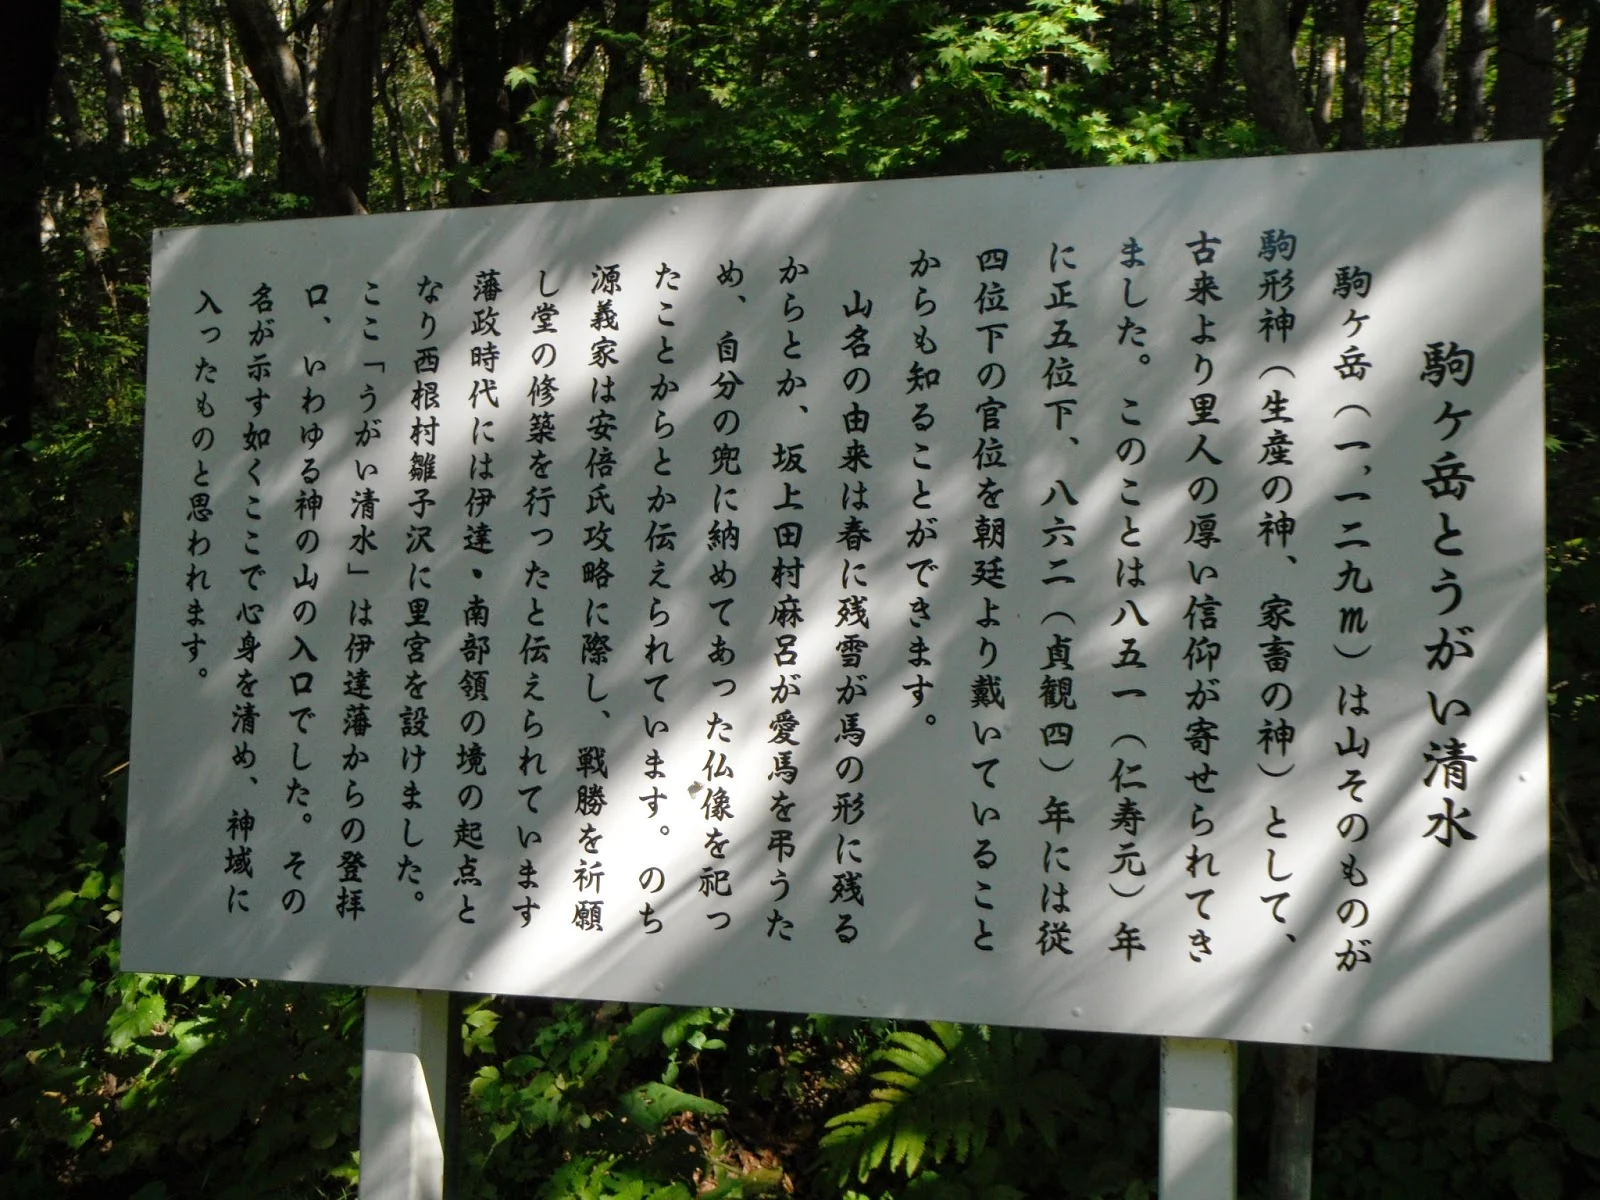 駒ヶ岳とうがい清水
駒ヶ岳（一,一二九m）は山そのものが
駒形神（生産の神、家畜の神）として、
古来より里人の厚い信仰が寄せられてき
ました。このことは八五一（仁寿元）年
に正五位下、八六二（貞観四）年には従
四位下の官位を朝廷より戴いていること
からも知ることができます。
山名の由来は春に残雪が馬の形に残る
からとか、坂上田村麻呂が愛馬を弔うた
め、自分の兜に納めてあった仏像を祀っ
たことからとか伝えられています。のち
源義家は安倍氏攻略に際し、戦勝を祈願
し堂の修築を行ったと伝えられています
藩政時代には伊達・南部領の境の起点と
なり西根村雛子沢に里宮を設けました。
ここ「うがい清水」は伊達藩からの登拝
口、いわゆる神の山の入口でした。その
名が示す如くここで心身を清め、神域に
入ったものと思われます。